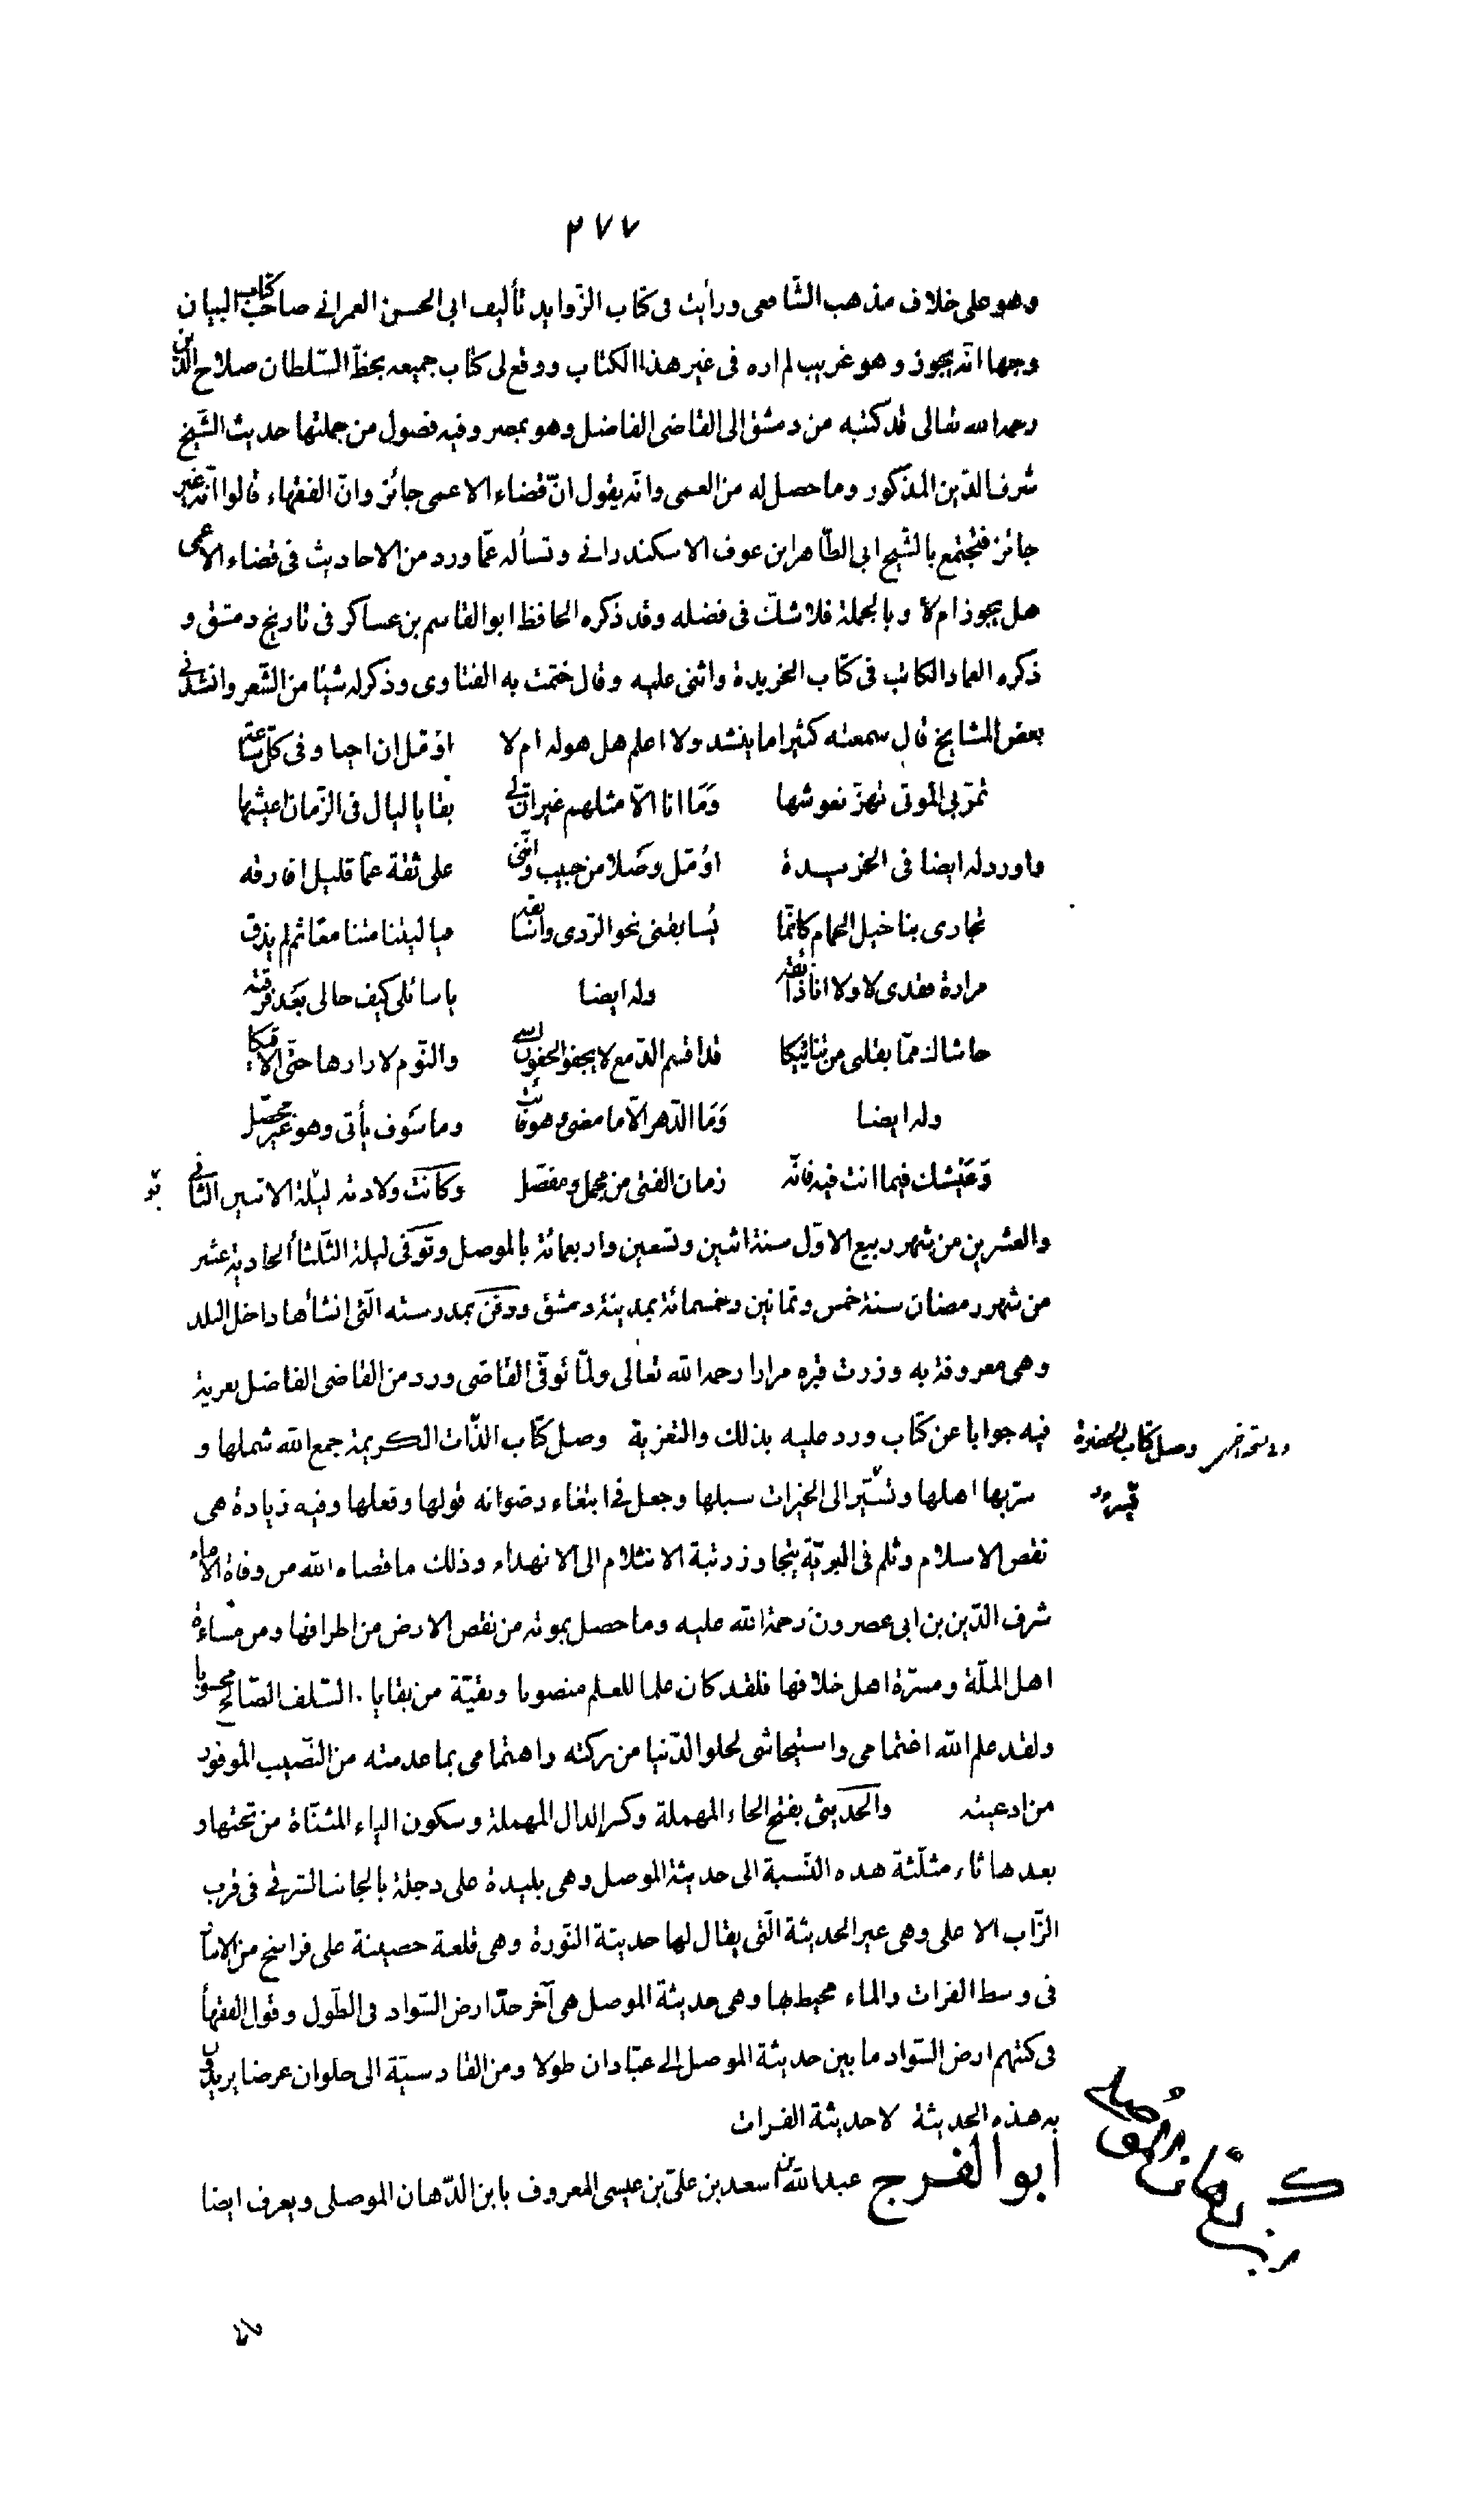 ٢٧٧
وهو على خلاف مذهب الشّافعى ورأيت فى كتاب الزّوايد تأليف ابى الحسن العمرانى صاحب كتاب البيان
وجها انّه يجوز وهو غريب لم اره فى غير هذا الكتاب ووقع لى كتاب جميعه بخطّ السّلطان صلاح الدّين
رحمه الله تعالى قد كتبه من دمشق الى القاضى الفاضل وهو بمصر وفيه فصول من جملتها حديث الشّيخ
شرف الدّين المذكور وما حصل له من العمى وانّه يقول انّ قضاء الاعمى جائز وانّ الفقهاء قالوا انّه غير
جائز فتجتمع بالشّيخ ابى الطّاهر ابن عوف الاسكندرانى وتسأله عمّا ورد من الاحاديث فى قضاء الاعمى
هل يجوز ام لا وبالجملة فلا شكّ فى فضله وقد ذكره الحافظ ابو القاسم بن عساكر فى تاريخ دمشق و
ذكره العماد الكاتب فى كتاب الخريدة واثنى عليه وقال ختمت به الفتاوى وذكر له شيئا من الشّعر وانشدنى
بعض المشايخ قال سمعته كثيرا ما ينشد ولا اعلم هل هو له ام لا اؤمّل ان احيا وفى كلّ ساعة
تمرّ بى الموتى تهزّ نعوشها وَمَا انا الّا مثلهم غير انّ لى بقايا ليال فى الزّمان اعيشها
واورد له ايضا فى الخريدة اؤمّل وصَلا من حبيب وانّنى على ثقة عمّا قليل افارقه
تجارى بنا خيل الحمام كانّما يُسابقنى نحو الرّدى وانا اسابقه فيا ليتنا متنا معًا ثم لم يذق
مرارة فقدى لا ولا انا ذائقه وله ايضا يا سائلى كيف حالى بعد فرقته
حاشاك ممّا بقلبى من تنائيكا قد اقسم الدّمع لا يجفو الجفون اسى والنّوم لا زارها حتّى الاقيكا
وله ايضا وَمَا الدّهر الّا ما مضى وهو فائت وما سَوف يأتى وهو غير محصّل
وعَيشك فيما انت فيه فانّه زمان الفتى من مجمل ومفصّل وكانت ولادته ليلة الاثنين الثّانى
والعشرين من شهر ربيع الاوّل سنة اثنين وتسعين واربعمائة بالموصل وتوفى ليلة الثّلثا الحادية عشر
من شهر رمضان سنة خمس وثمانين وخمسمائة بمدينة دمشق ودفن بمدرسته الّتى انشأها داخل البلد
وهى معروفة به وزرت قبره مرارا رحمه الله تعالى ولمّا توفّى القاضى ورد من القاضى الفاضل بعرية
فيه جوابا عن كتاب ورد عليه بذلك والتعزية وصل كتاب الذّات الكريمة جمع الله شملها و
وصل كتاب الحضرة
سرّ بها اهلها وتسيّر الى الخيرات سبلها وجعل فى ابتغاء رضوانه قولها وفعلها وفيه زيادة هى
نقص الاسلام وثلم فى البريّة يتجاوز رتبة الانثلام الى الانهدام وذلك ما قضاه الله من وفاة الامام
شرف الدّين بن ابى عصرون رحمة الله عليه وما حصل بموته من نقص الارض من اطرافها ومن مساءة
اهل الملّة ومسرّة اهل خلافها فلقد كان علما للعلم منصوبا وبقيّة من بقايا السّلف الصّالح محسوبا
ولقد علم الله اغتمامى واستيحاشى لخلو الدّنيا من بركته واهتمامى بما عدمته من النّصيب الموفور
من ادعيته والحَديثى بفتح الحاء المهملة وكسر الدال المهملة وسكون الياء المثنّاة من تحتها و
بعدها ثاء مثلّثة هذه النّسبة الى حديثة الموصل وهى بليدة على دجلة بالجانب الشرقى فى قرب
الزّاب الاعلى وهى غير الحديثة الّتى يقال لها حديثة النّورة وهى قلعة حصينة على فراسخ من الانبار
فى وسط الفرات والماء محيط بها وهى حديثة الموصل هى آخر حدّ ارض السّواد فى الطّول وقول الفقهأ
فى كتبهم ارض السّواد ما بين حديثة الموصل الى عبّادان طولا ومن القادسيّة الى حلوان عرضا يريدون
به هذه الحديثة لا حديثة الفرات
ابو الفرج عبد الله بن اسعد بن علىّ بن عيسى المعروف بابن الدّهان الموصلى ويعرف ايضا